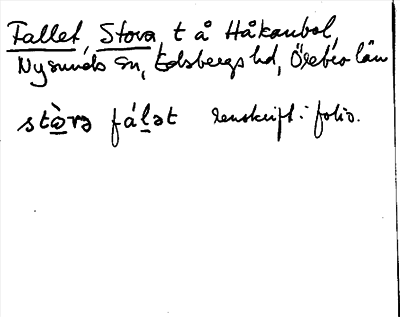 Fallet, Stora t å Håkanbol,
Nysunds sn, Edsbergs hd, Örebro län
stò̱rə fáḻət renskrift i folio.